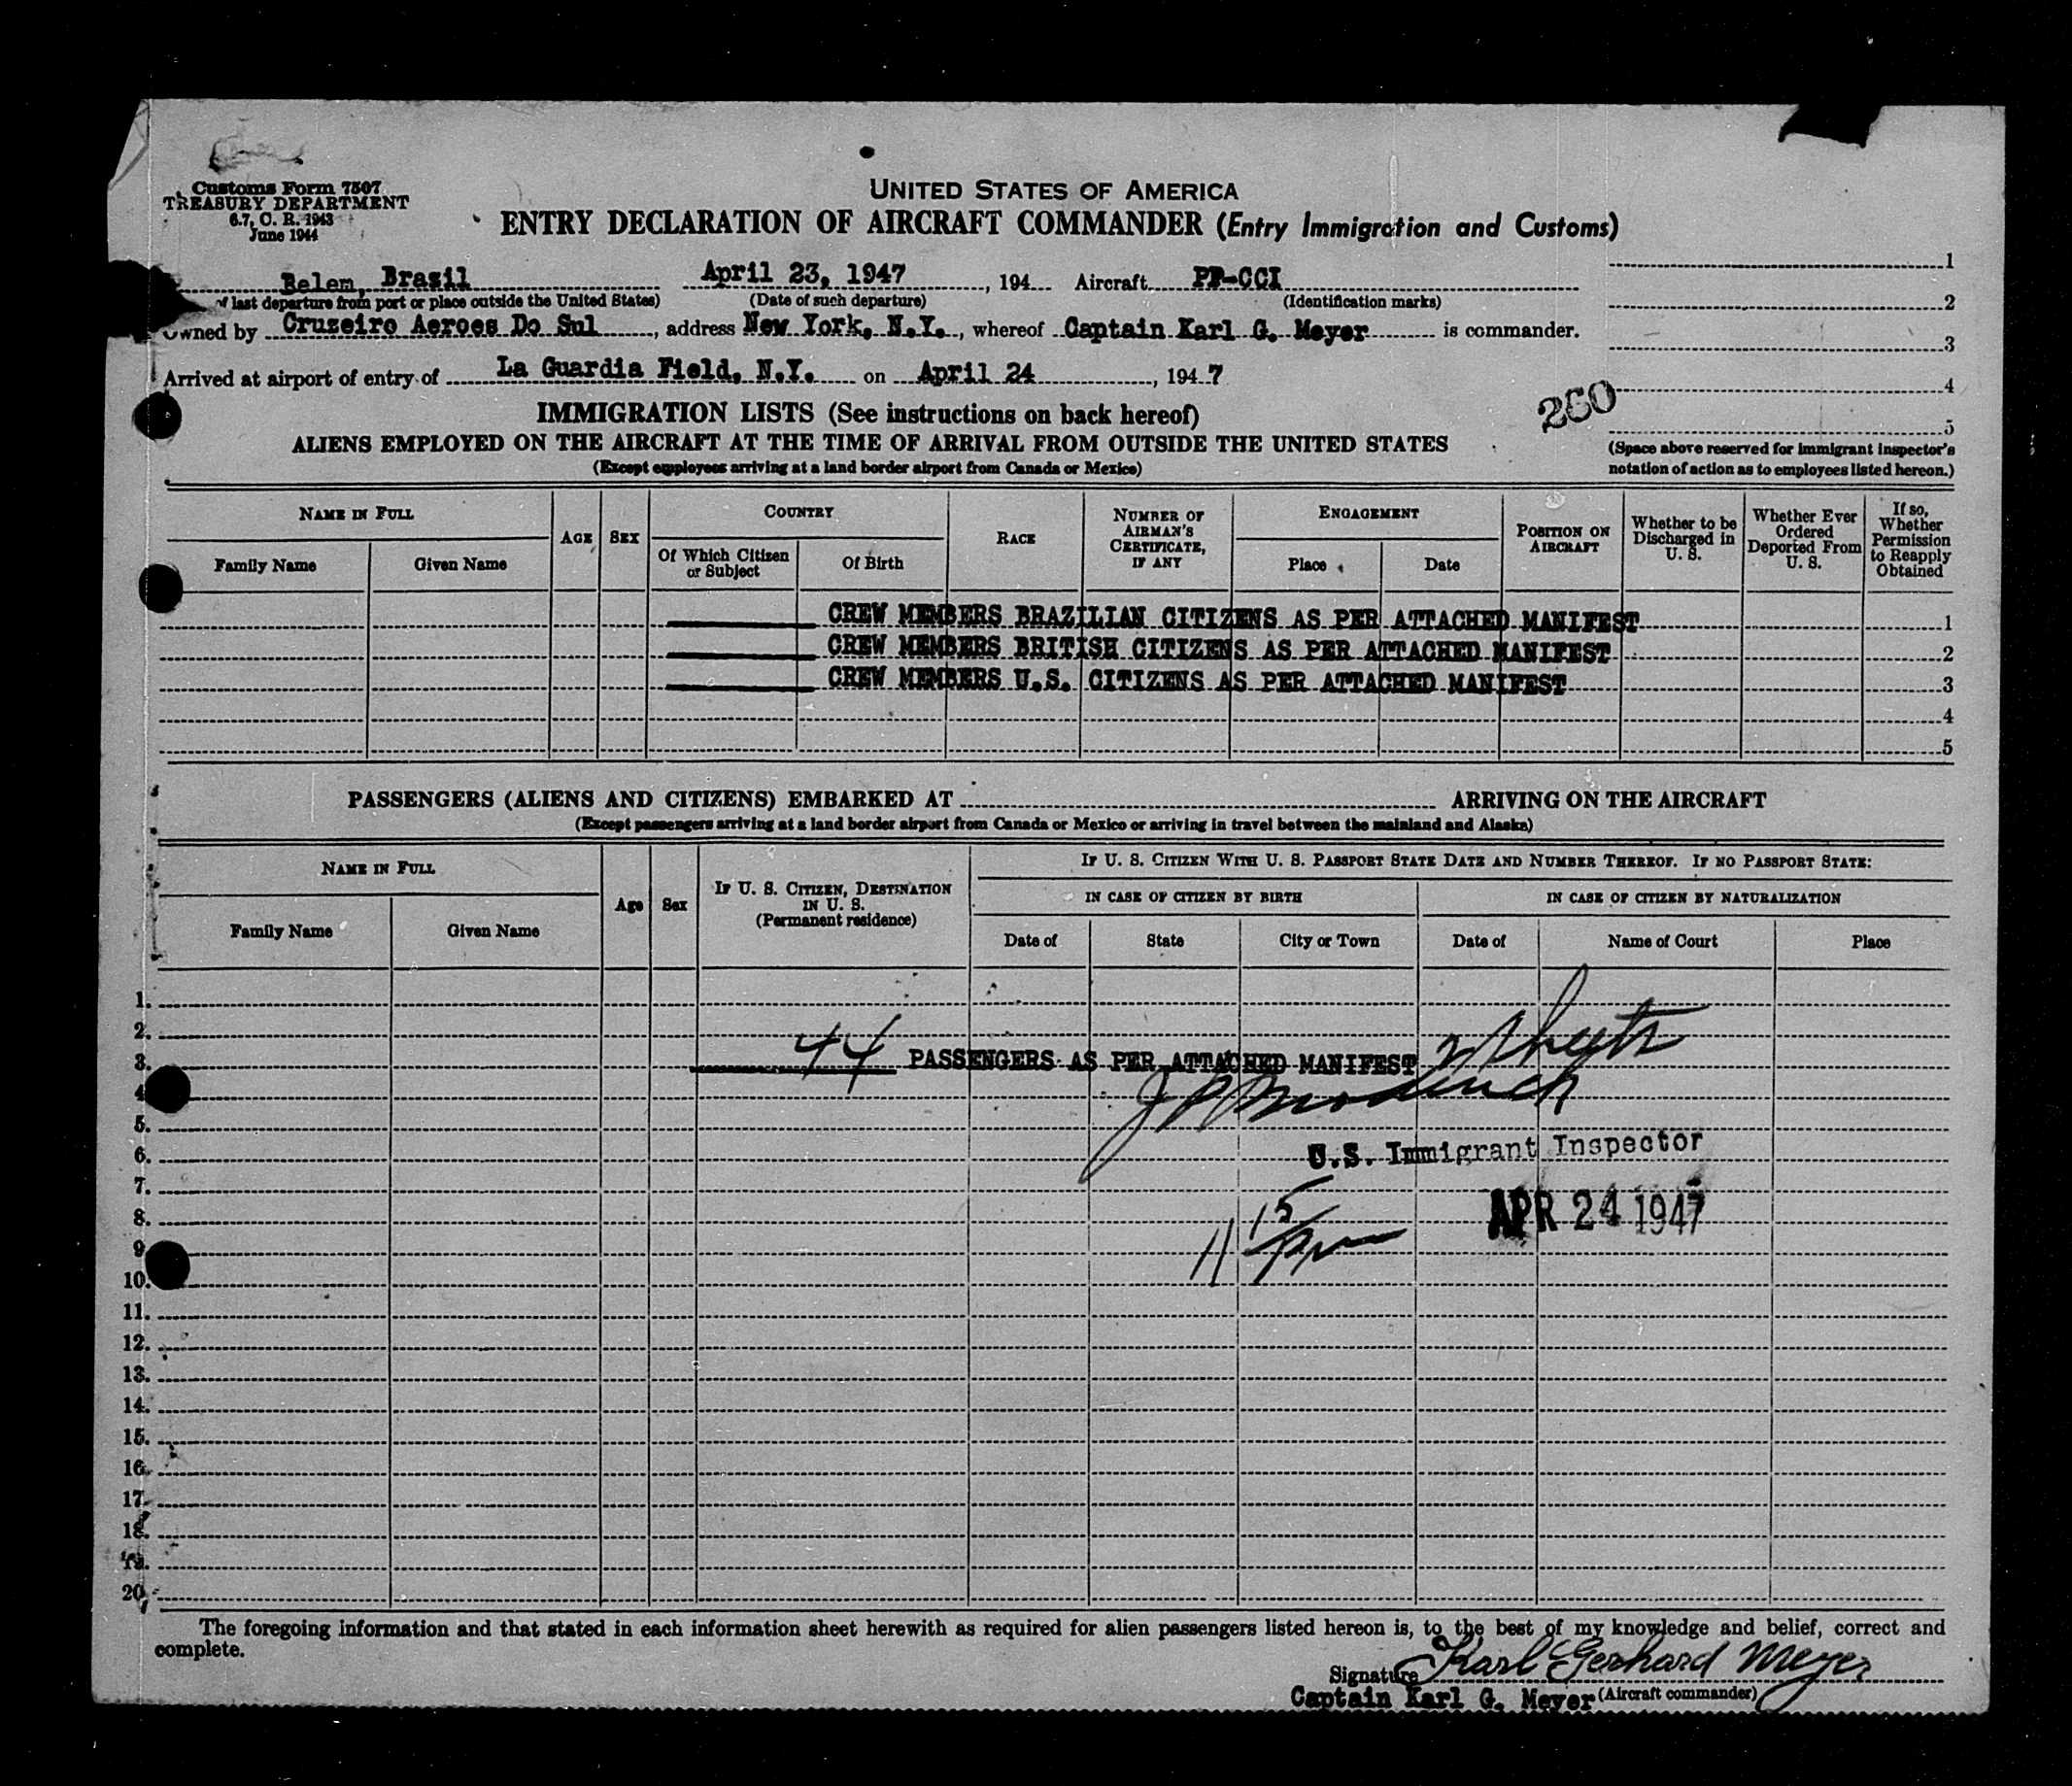 Customs Form 7507
TREASURY DEPARTMENT
6.7, C. R. 1943
June 1944
UNITED STATES OF AMERICA
ENTRY DECLARATION OF AIRCRAFT COMMANDER (Entry Immigration and Customs)
Belem, Brazil April 23, 1947, 194 Aircraft PP-CCI
of last departure from port or place outside the United States) (Date of such departure) (Identification marks)
Owned by Cruzeiro Aeroes Do Sul, address New York, N.Y., whereof Captain Karl G. Meyer is commander.
Arrived at airport of entry of La Guardia Field, N.Y. on April 24, 1947
1
2
3
4
5
260
(Space above reserved for immigrant inspector's
notation of action as to employees listed hereon.)
IMMIGRATION LISTS (See instructions on back hereof)
ALIENS EMPLOYED ON THE AIRCRAFT AT THE TIME OF ARRIVAL FROM OUTSIDE THE UNITED STATES
(Except employees arriving at a land border airport from Canada or Mexico)
NAME IN FULL
Family Name
Given Name
AGE
SEX
COUNTRY
Of Which Citizen
or Subject
Of Birth
RACE
NUMBER OF
AIRMAN'S
CERTIFICATE,
IF ANY
ENGAGEMENT
Place
Date
POSITION ON
AIRCRAFT
Whether to be
Discharged in
U. S.
Whether Ever
Ordered
Deported From
U. S.
If so,
Whether
Permission
to Reapply
Obtained
CREW MEMBERS BRAZILIAN CITIZENS AS PER ATTACHED MANIFEST 1
CREW MEMBERS BRITISH CITIZENS AS PER ATTACHED MANIFEST 2
CREW MEMBERS U.S. CITIZENS AS PER ATTACHED MANIFEST 3
4
5
PASSENGERS (ALIENS AND CITIZENS) EMBARKED AT ARRIVING ON THE AIRCRAFT
(Except passengers arriving at a land border airport from Canada or Mexico or arriving in travel between the mainland and Alaska)
NAME IN FULL
Family Name
Given Name
Age
Sex
IF U. S. CITIZEN, DESTINATION
IN U. S.
(Permanent residence)
IF U. S. CITIZEN WITH U. S. PASSPORT STATE DATE AND NUMBER THEREOF. IF NO PASSPORT STATE:
IN CASE OF CITIZEN BY BIRTH
IN CASE OF CITIZEN BY NATURALIZATION
Date of
State
City or Town
Date of
Name of Court
Place
1.
2.
3. 44 PASSENGERS AS PER ATTACHED MANIFEST
4.
5.
6. U.S. Immigrant Inspector
7.
8. APR 24 1947
9. 11 15 pm
10.
11.
12.
13.
14.
15.
16.
17.
18.
19.
20.
The foregoing information and that stated in each information sheet herewith as required for alien passengers listed hereon is, to the best of my knowledge and belief, correct and
complete.
Signature Karl Gerhard Meyer
Captain Karl G. Meyer (Aircraft commander)